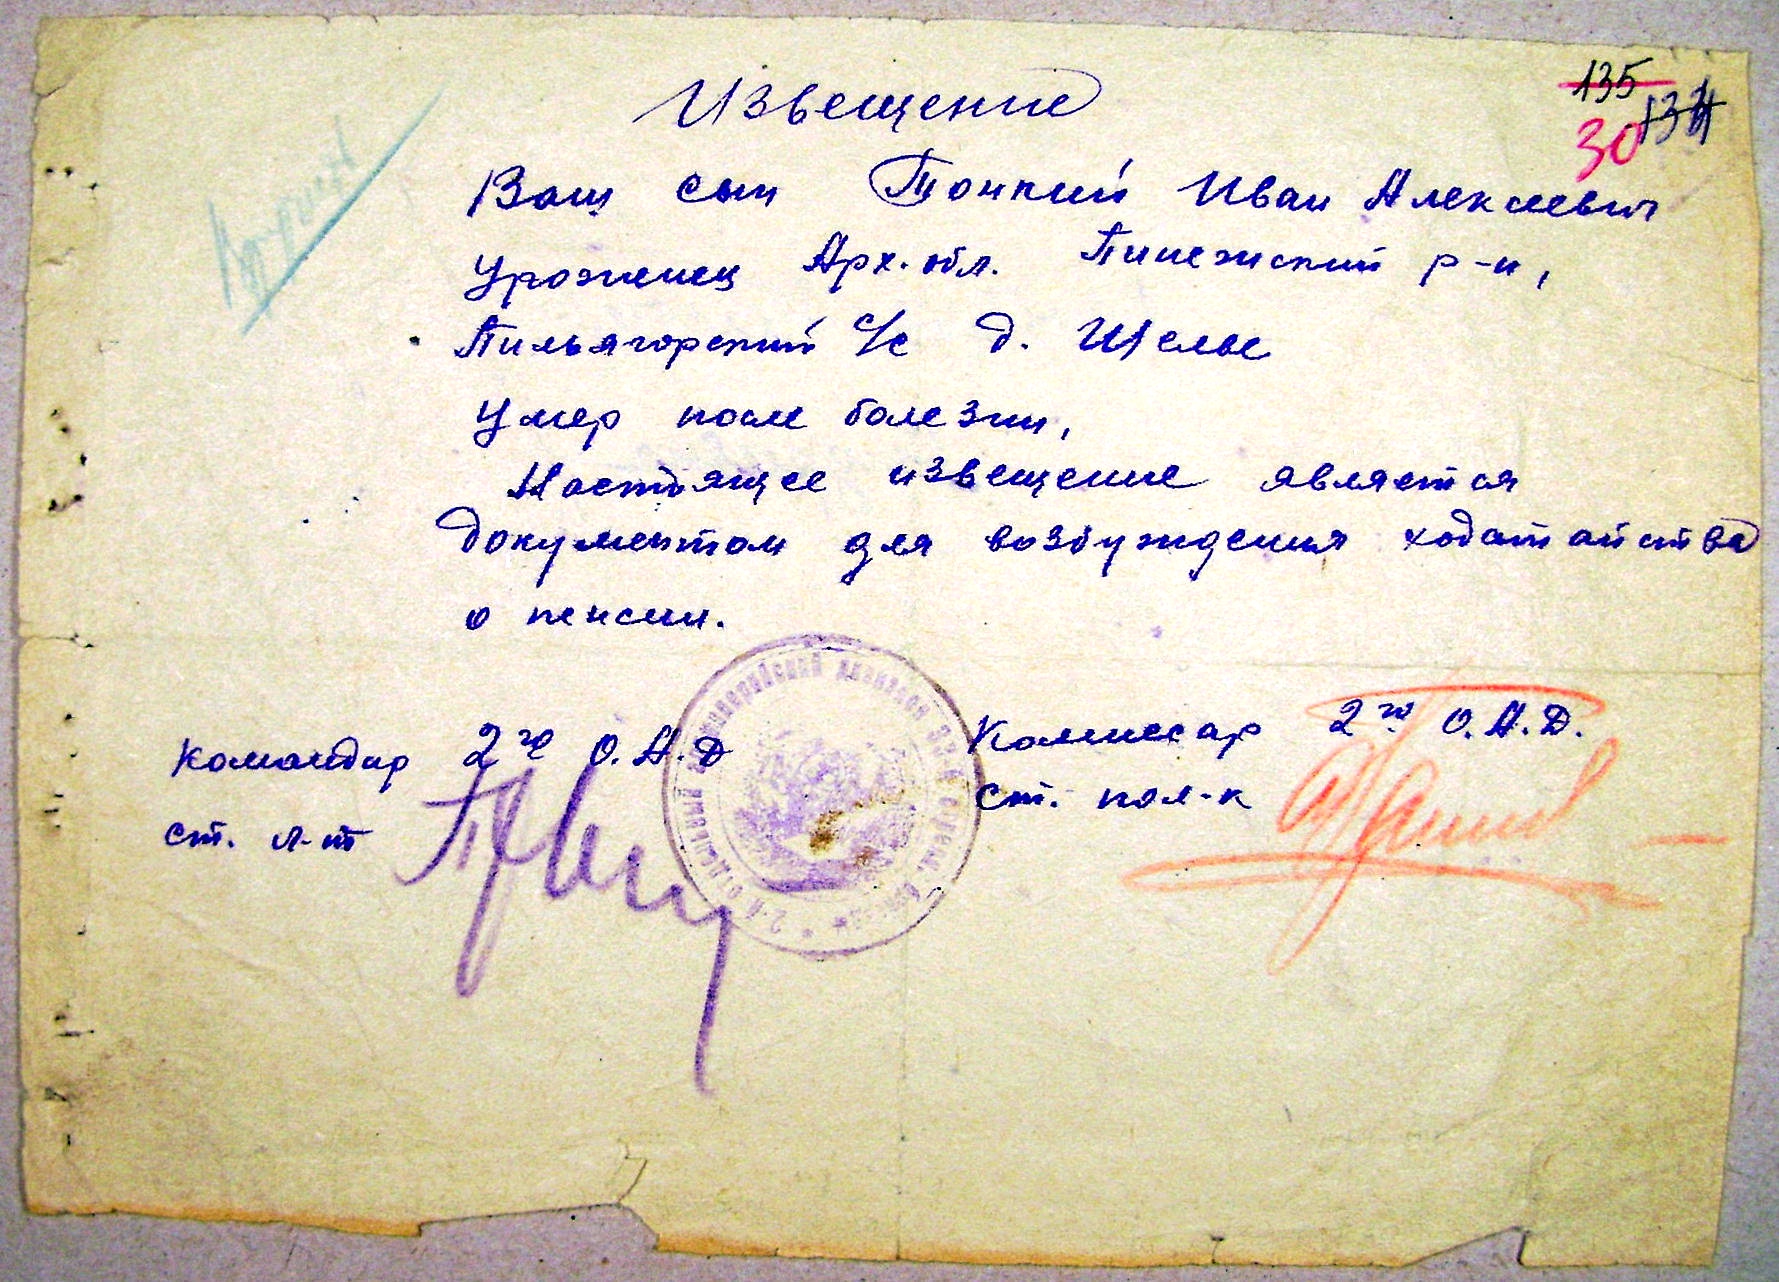 135
134
30
Извещение
Ваш сын Тонкий Иван Алексеевич
уроженец Арх. обл. Пинежский р-н,
Пильегорский с/с д. Щелье
умер после болезни,
Настоящее извещение является
документом для возбуждения ходатайства
о пенсии.
Командир 2го О.А.Д
ст. л-т
Комиссар 2го О.А.Д.
ст. пол-к
2-й отдельный артиллерийский дивизион